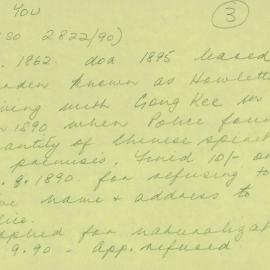 YOU
3
(SO 2822/90)
. 1862. doa 1895 leased
den known as Howlett
ing with Gong Kee in
1890 when Police foun
antity of Chinese
premises. Fined 10/- on
. 9. 1890. for refusing to
name & address to
lice.
pplied for naturalizat
. 9. 90 - App. refused